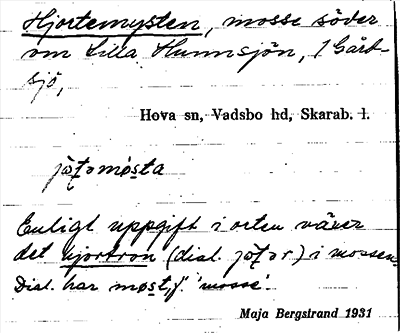 Hjortemysten, mosse söder
om Lilla Hunnsjön, / Gård-
sjö,
Hova sn, Vadsbo hd, Skarab. l.
Enligt uppgift i orten växer
det hjortron (dial. ) i mossen.
Dial. har f. 'mosse'.
Maja Bergstrand 1931